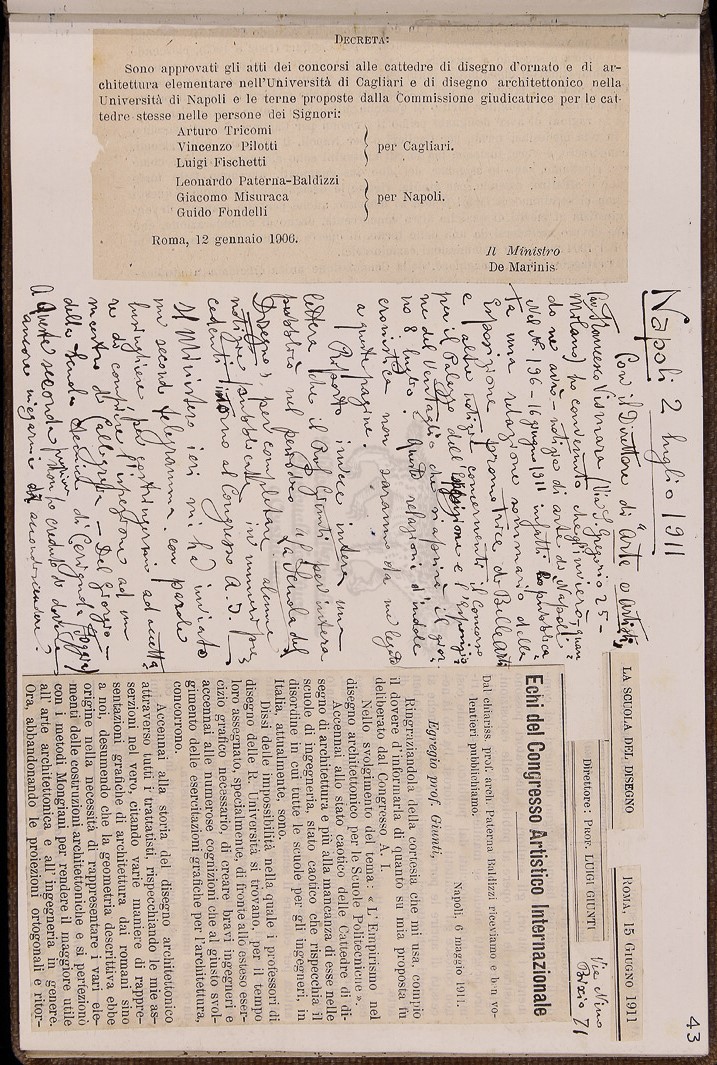 DECRETA:
Sono approvati gli atti dei concorsi alle cattedre di disegno d'ornato e di ar-
chitettura elementare nell'Università di Cagliari e di disegno architettonico nella
Università di Napoli e le terne proposte dalla Commissione giudicatrice per le cat-
tedre stesse nelle persone dei Signori:
Arturo Tricomi
Vincenzo Pilotti
Luigi Fischetti
per Cagliari.
Leonardo Paterna-Baldizzi
Giacomo Misuraca
Guido Fondelli
per Napoli.
Roma, 12 gennaio 1906.
Il Ministro
De Marinis
43
Napoli 2 luglio 1911
Con il Direttore di "Arte e Artisti,
Francesco Vismara (Via S. Gregorio 25 -
Milano) ho convenuto che gli invierò, quan
do ne avrò - notizie di arte da Napoli.
Nel N. 196 - 16 giugno 1911 infatti ha pubblica
ta una relazione sommaria della
Esposizione promotrice di Belle Arti
e altre notizie concernenti il Concorso
per il Palazzo dell'Esposizione e l'
ne del Ventaglio che si aprirà il gior
no 8 luglio. Queste relazioni d'indole
cronistica non saranno da me legate
a queste pagine.
Riporto invece intera una
lettera che il Prof. Giunti per intera
pubblicò nel periodico "La Scuola del
Disegno, per completare alcune
notizie pubblicate in numeri pre
cedenti intorno al Congresso A. I.
Il Ministero ieri mi ha inviato
un secondo telegramma con parole
lusinghiere per costringermi ad accetta
re di compiere l'ispezione ad un
maestro di Calligrafia - Del Giorgio -
della Scuola Tecnica di Cerignola (Foggia)
A queste seconde
ancora negarmi di accondiscendere.
LA SCUOLA DEL DISEGNO
ROMA, 15 GIUGNO 1911
Direttore: PROF. LUIGI GIUNTI
Via Nino
Bixio 71
Echi del Congresso Artistico Internazionale
Dal chiariss. prof. arch. Paterna Baldizzi riceviamo e ben vo-
lentieri pubblichiamo.
Napoli, 6 maggio 1911.
Egregio prof. Giunti,
Ringraziandola della cortesia che mi usa, compio
il dovere d'informarla di quanto su mia proposta fu
deliberato dal Congresso A. I.
Nello svolgimento del tema: « L'Empirismo nel
disegno architettonico per le Scuole Politecniche ».
Accennai allo stato caotico delle Cattedre di di-
segno di architettura e più alla mancanza di esse nelle
scuole di ingegneria, stato caotico che rispecchia il
disordine in cui tutte le scuole per gli ingegneri, in
Italia, attualmente, sono.
Dissi delle impossibilità nella quale i professori di
disegno delle R. Università si trovano, per il tempo
loro assegnato, specialmente, di fronte allo esteso eser-
cizio grafico necessario, di creare bravi ingegneri e
accennai alle numerose cognizioni che al giusto svol-
gimento delle esercitazioni grafiche per l'architettura,
concorrono.
Accennai alla storia del disegno architettonico
attraverso tutti i trattatisti, rispecchiando le mie as-
serzioni nel vero, citando varie maniere di rappre-
sentazioni grafiche di architettura dai romani sino
a noi, desumendo che la geometria descrittiva ebbe
origine nella necessità di rappresentare i vari ele-
menti delle costruzioni architettoniche e si perfezionò
con i metodi Mongiani per rendere il maggiore utile
all'arte architettonica e all'ingegneria in genere.
Ora, abbandonando le proiezioni ortogonali e ritor-